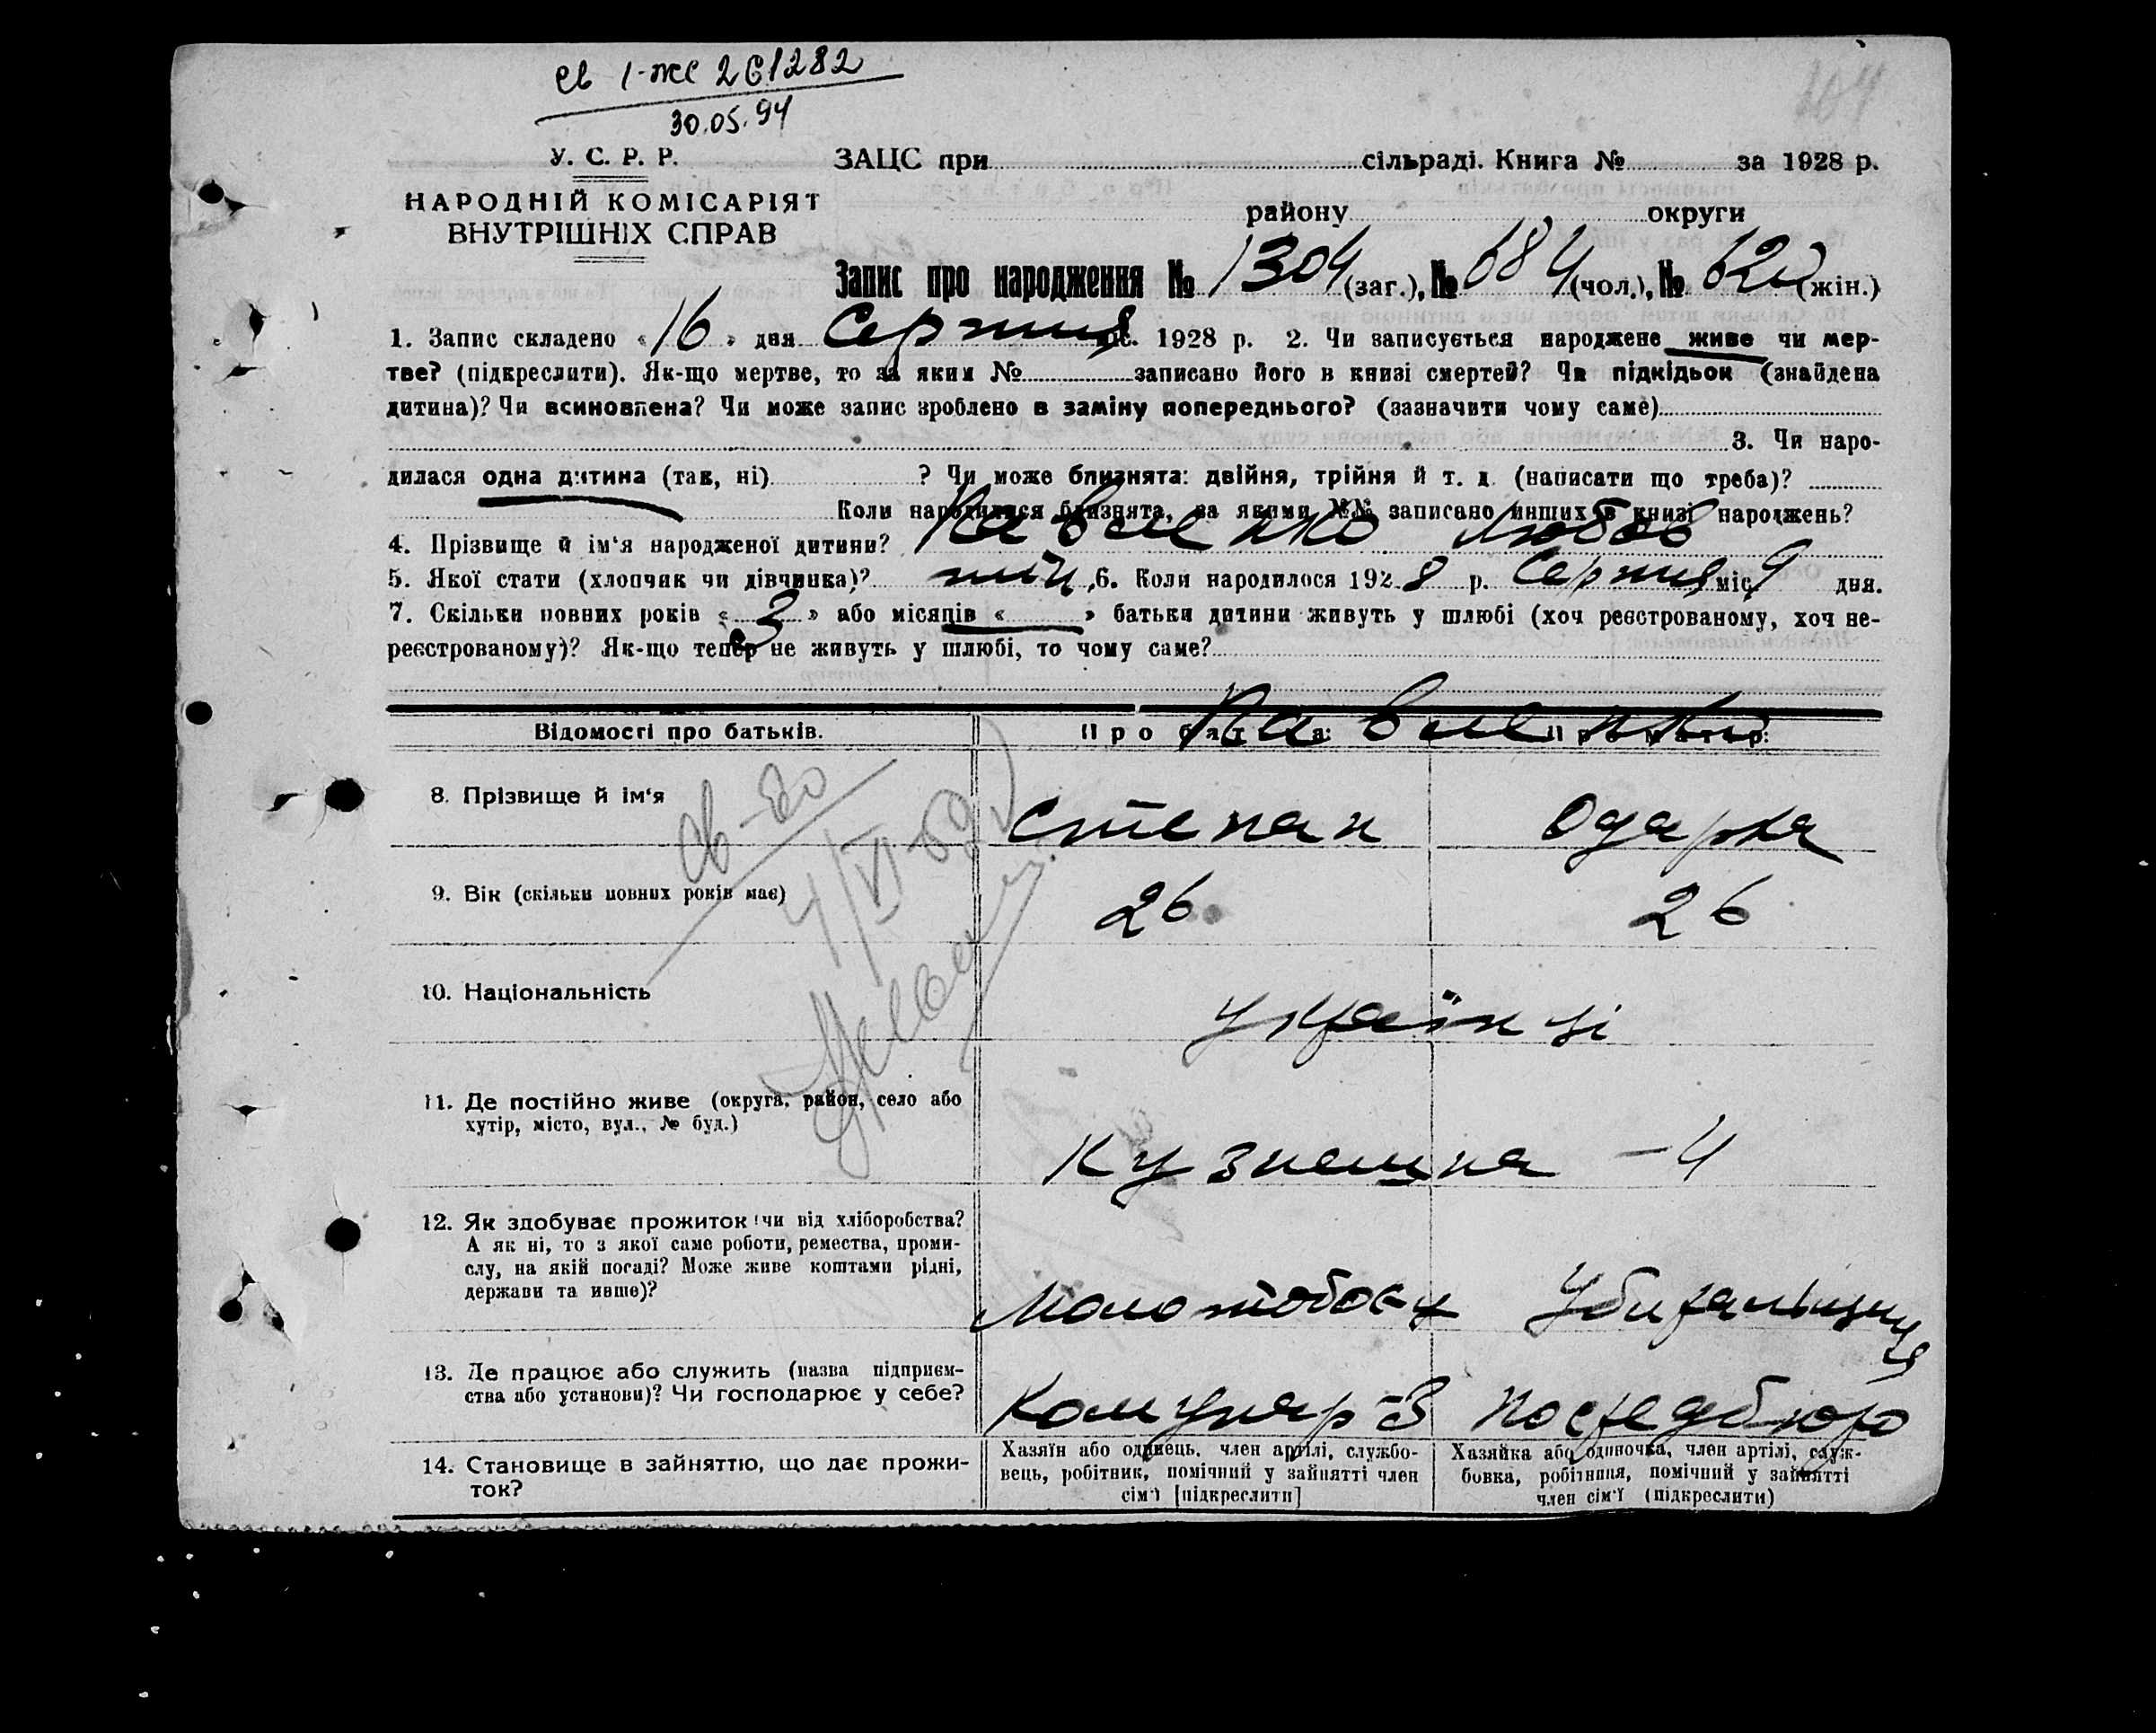 св I-жс 261282
30.05.94
У. С. Р. Р.
ЗАЦС при сільраді. Книга № за 1928 р.
НАРОДНІЙ КОМІСАРІЯТ
ВНУТРІШНІХ СПРАВ
району округи
Запис про народження № 1304 (заг.), № 684 (чол.), № 620 (жін.)
1. Запис складено « 16 » дня Серпня міс. 1928 р. 2. Чи записується народжене живе чи мер-
тве? (підкреслити). Як-що мертве, то за яким № записано його в книзі смертей? Чи підкідьок (знайдена
дитина)? Чи всиновлена? Чи може запис зроблено в заміну попереднього? (зазначити чому саме)
3. Чи наро-
дилася одна дитина (так, ні) ? Чи може близнята: двійня, трійня й т. д. (написати що треба)?
Коли народилися близнята, за якими №№ записано инших в книзі народжень?
4. Прізвище й ім‘я народженої дитини? Любов
5. Якої стати (хлопчик чи дівчинка)? жін, 6. Коли народилося 1928 р. Серпня міс. 9 дня.
7. Скільки повних років « 3 » або місяців « » батьки дитини живуть у шлюбі (хоч реєстрованому, хоч не-
реєстрованому)? Як-що тепер не живуть у шлюбі, то чому саме?
Відомості про батьків. Про батька: Про матір:
8. Прізвище й ім‘я
Степан Одарка
св-во
4/VI-69
9. Вік (скільки повних років має)
26 26
10. Національність
Українці
11. Де постійно живе (округа, район, село або
хутір, місто, вул., № буд.)
Кузнешна - 4
12. Як здобуває прожиток: чи від хліборобства?
А як ні, то з якої саме роботи, ремества, проми-
слу, на якій посаді? Може живе коштами рідні,
держави та инше)?
Молотобоєц Убиральщиця
13. Де працює або служить (назва підприєм-
ства або установи)? Чи господарює у себе?
Комунар-З Посредбюро
14. Становище в зайняттю, що дає прожи-
ток?
Хазяїн або одинець, член артілі, службо-
вець, робітник, помічний у зайнятті член
сім‘ї [підкреслити]
Хазяйка або одиночка, член артілі, служ-
бовка, робітниця, помічний у зайнятті
член сім‘ї (підкреслити)